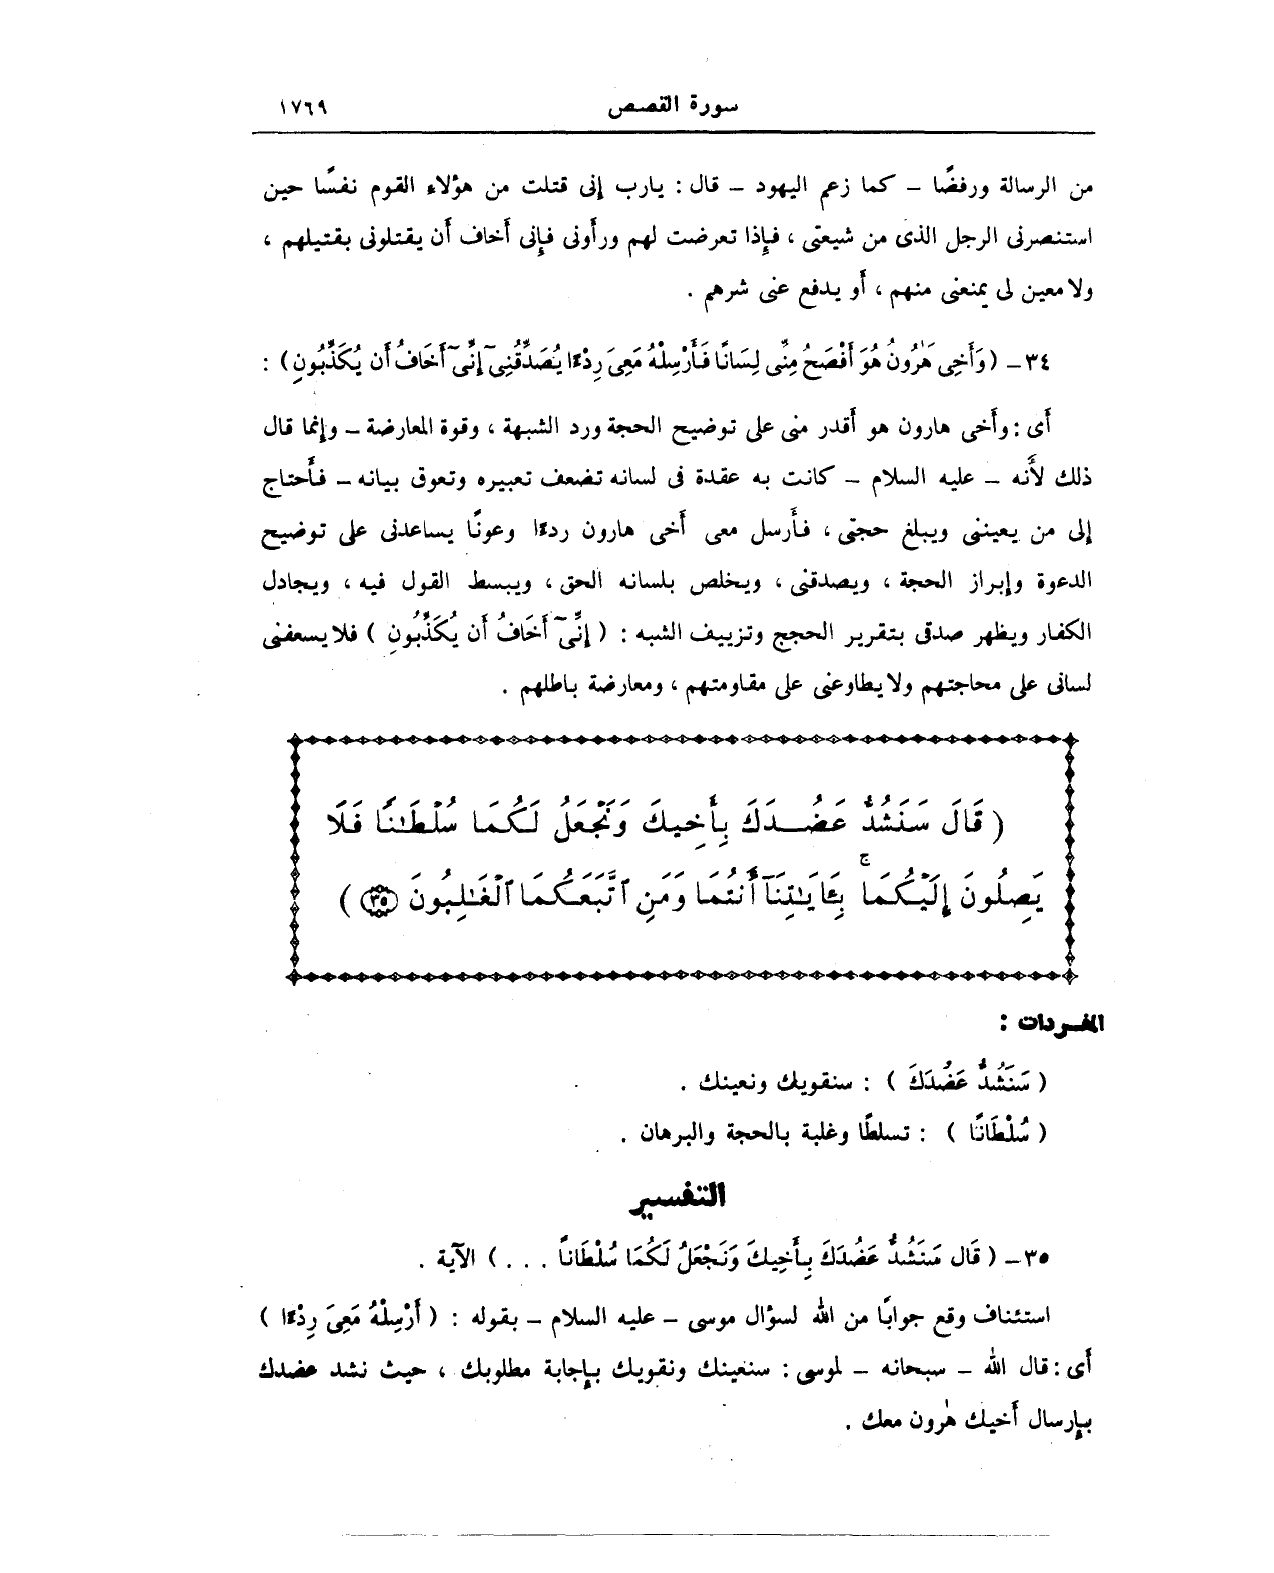 سورة القصص ١٧٦٩
من الرسالة ورفضًا – كما زعم اليهود – قال : يارب إنى قتلت من هؤلاء القوم نفسًا حين
استنصرنى الرجل الذى من شيعتى ، فإذا تعرضت لهم ورأونى فإنى أخاف أن يقتلونى بقتيلهم ،
ولا معين لى يمنعنى منهم ، أو يدفع عنى شرهم .
٣٤ – (وَأَخِى هَٰرُونُ هُوَ أَفْصَحُ مِنِّى لِسَانًا فَأَرْسِلْهُ مَعِىَ رِدْءًا يُصَدِّقُنِىٓ إِنِّىٓ أَخَافُ أَن يُكَذِّبُونِ) :
أى : وأخى هارون هو أقدر منى على توضيح الحجة ورد الشبهة ، وقوة المعارضة – وإنما قال
ذلك لأنه – عليه السلام – كانت به عقدة فى لسانه تضعف تعبيره وتعوق بيانه – فأحتاج
إلى من يعيننى ويبلغ حجتى ، فأرسل معى أخى هارون ردءًا وعونًا يساعدنى على توضيح
الدعوة وإبراز الحجة ، ويصدقنى ، ويخلص بلسانه الحق ، ويبسط القول فيه ، ويجادل
الكفار ويظهر صدقى بتقرير الحجج وتزييف الشبه : ( إِنِّىٓ أَخَافُ أَن يُكَذِّبُونِ ) فلا يسعفنى
لسانى على محاجتهم ولا يطاوعنى على مقاومتهم ، ومعارضة باطلهم .
( قَالَ سَنَشُدُّ عَضُدَكَ بِأَخِيكَ وَنَجْعَلُ لَكُمَا سُلْطَٰنًا فَلَا
يَصِلُونَ إِلَيْكُمَا ۚ بِـَٔايَٰتِنَآ أَنتُمَا وَمَنِ ٱتَّبَعَكُمَا ٱلْغَٰلِبُونَ ٣٥ )
المفردات :
( سَنَشُدُّ عَضُدَكَ ) : سنقويك ونعينك .
( سُلْطَانًا ) : تسلطًا وغلبة بالحجة والبرهان .
التفسير
٣٥ – ( قَال سَنَشُدُّ عَضُدَكَ بِأَخِيكَ وَنَجْعَلُ لَكُمَا سُلْطَاناً . . . ) الآية .
استئناف وقع جوابًا من الله لسؤال موسى – عليه السلام – بقوله : ( أَرْسِلْهُ مَعِىَ رِدْءًا )
أى : قال الله – سبحانه – لموسى : سنعينك ونقويك بإجابة مطلوبك ، حيث نشد عضدك
بإرسال أخيك هٰرون معك .